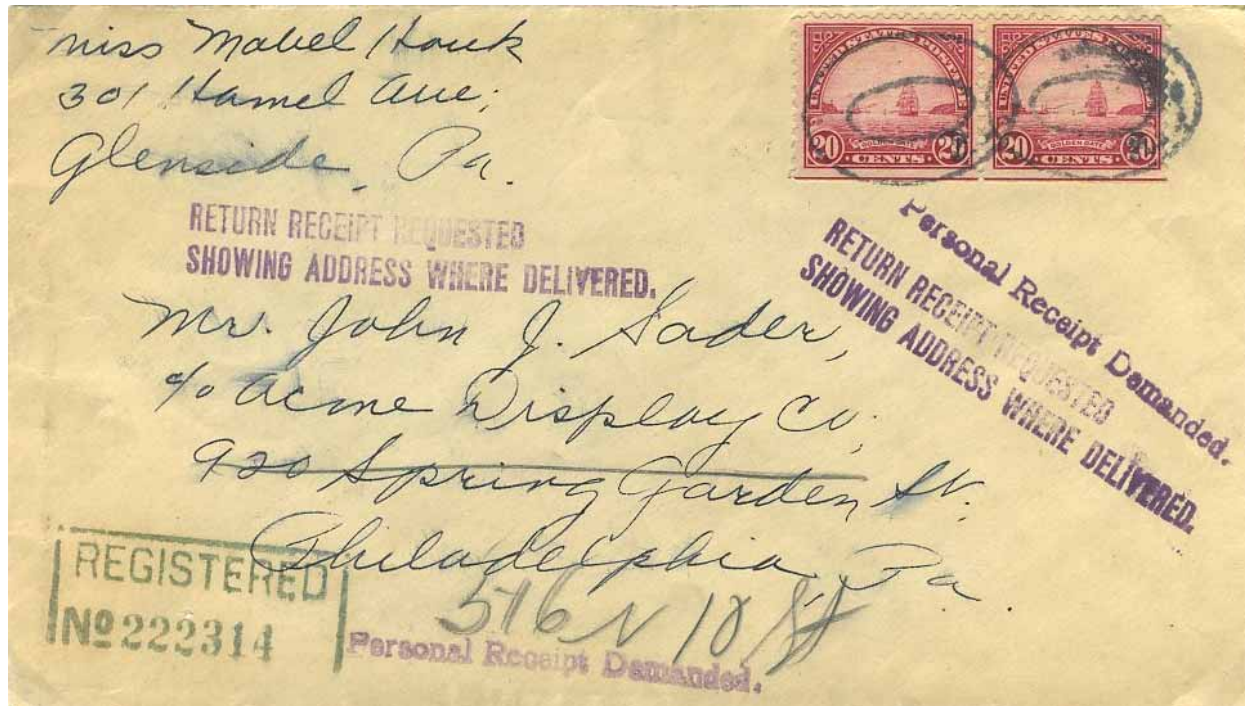 Miss Mabel Houk
301 Hamel Ave;
Glenside, Pa.
UNITED STATES POSTAGE
GOLDEN GATE
20 CENTS 20
UNITED STATES POSTAGE
GOLDEN GATE
20 CENTS 20
RETURN RECEIPT REQUESTED
SHOWING ADDRESS WHERE DELIVERED.
Personal Receipt Demanded.
RETURN RECEIPT REQUESTED
SHOWING ADDRESS WHERE DELIVERED.
Mr. John J. Sader,
c/o Acme Display Co,
920 Spring Garden St.
Philadelphia, Pa.
516 N 10 St
REGISTERED
No 222314
Personal Receipt Demanded.